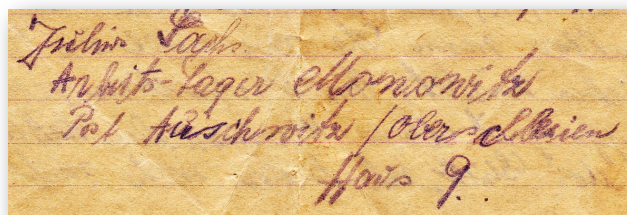 Julius Sachs.
Arbeits-Lager Monowitz
Post Auschwitz / Oberschlesien
Haus 9.